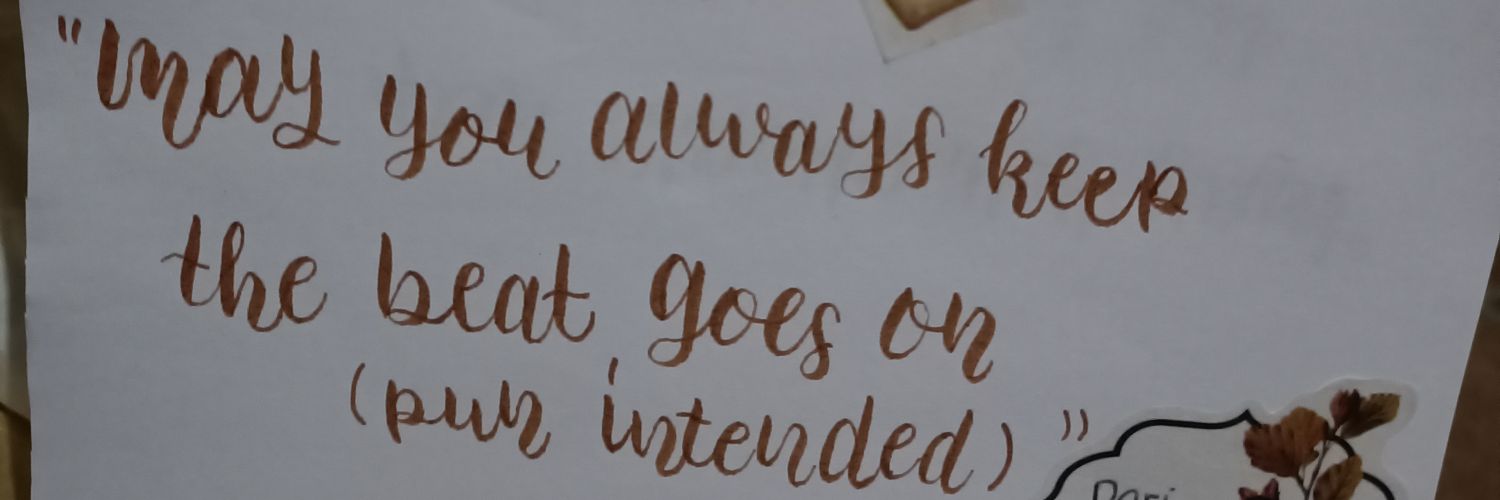 "may you always keep
the beat goes on
(pun intended)"
Dari